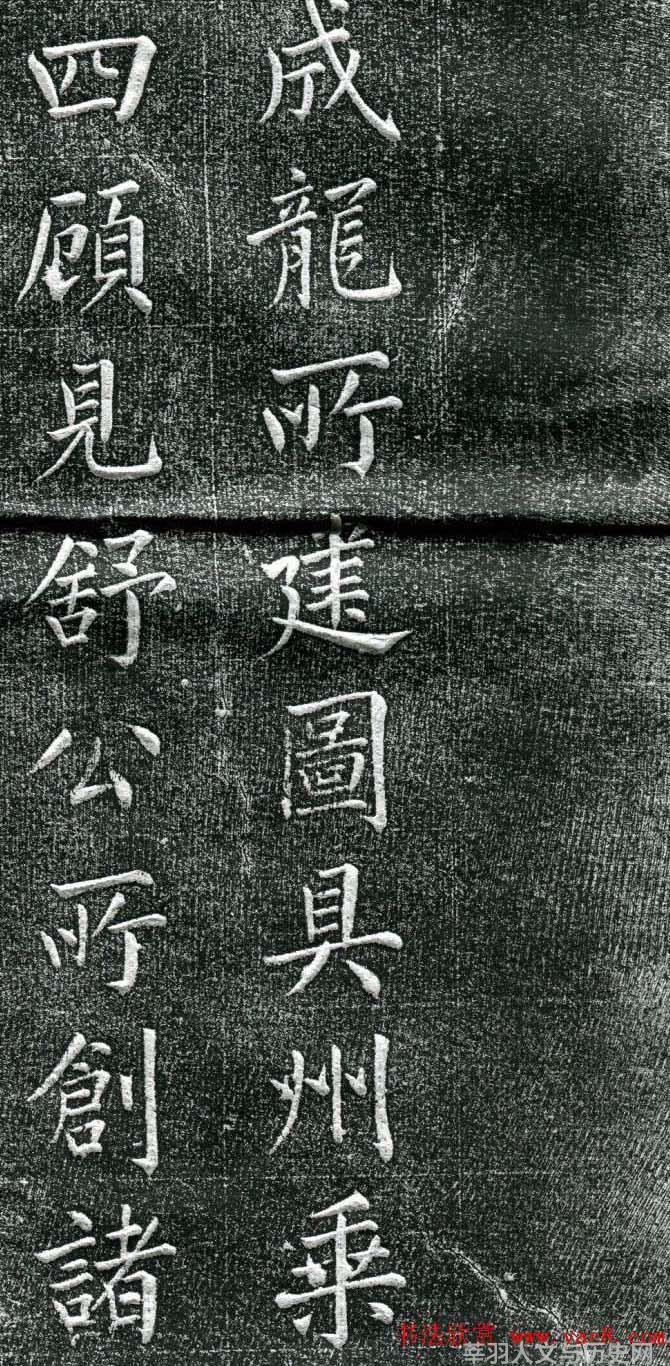 成龍所建圖具州乘
四顧見舒公所創諸
书法欣赏 www.yac8.com
莘羽人文与历史网